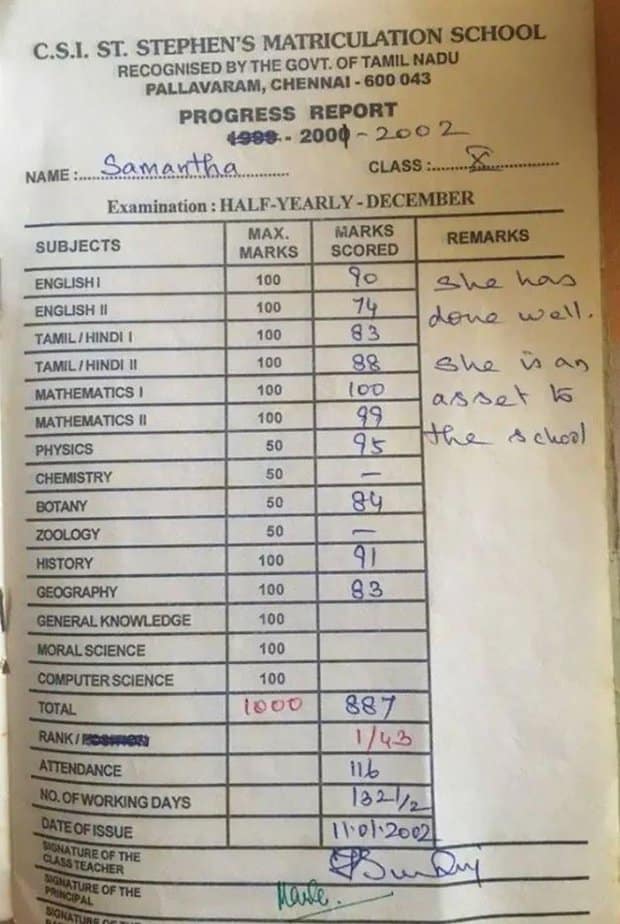 C.S.I. ST. STEPHEN'S MATRICULATION SCHOOL
RECOGNISED BY THE GOVT. OF TAMIL NADU
PALLAVARAM, CHENNAI - 600 043
PROGRESS REPORT
1999 - 2000 - 2002
NAME :..... Samantha ..... CLASS :..... X .....
Examination : HALF-YEARLY - DECEMBER
SUBJECTS MAX. MARKS MARKS SCORED REMARKS
ENGLISH I 100 90 She has
ENGLISH II 100 74 done well.
TAMIL / HINDI I 100 83
TAMIL / HINDI II 100 88 She is an
MATHEMATICS I 100 100 asset to
MATHEMATICS II 100 99 the school
PHYSICS 50 95
CHEMISTRY 50 —
BOTANY 50 84
ZOOLOGY 50 —
HISTORY 100 91
GEOGRAPHY 100 83
GENERAL KNOWLEDGE 100
MORAL SCIENCE 100
COMPUTER SCIENCE 100
TOTAL 1000 887
RANK / 1/43
ATTENDANCE 116
NO. OF WORKING DAYS 132 1/2
DATE OF ISSUE 11.01.2002
SIGNATURE OF THE
CLASS TEACHER
SIGNATURE OF THE
PRINCIPAL
SIGNATURE OF